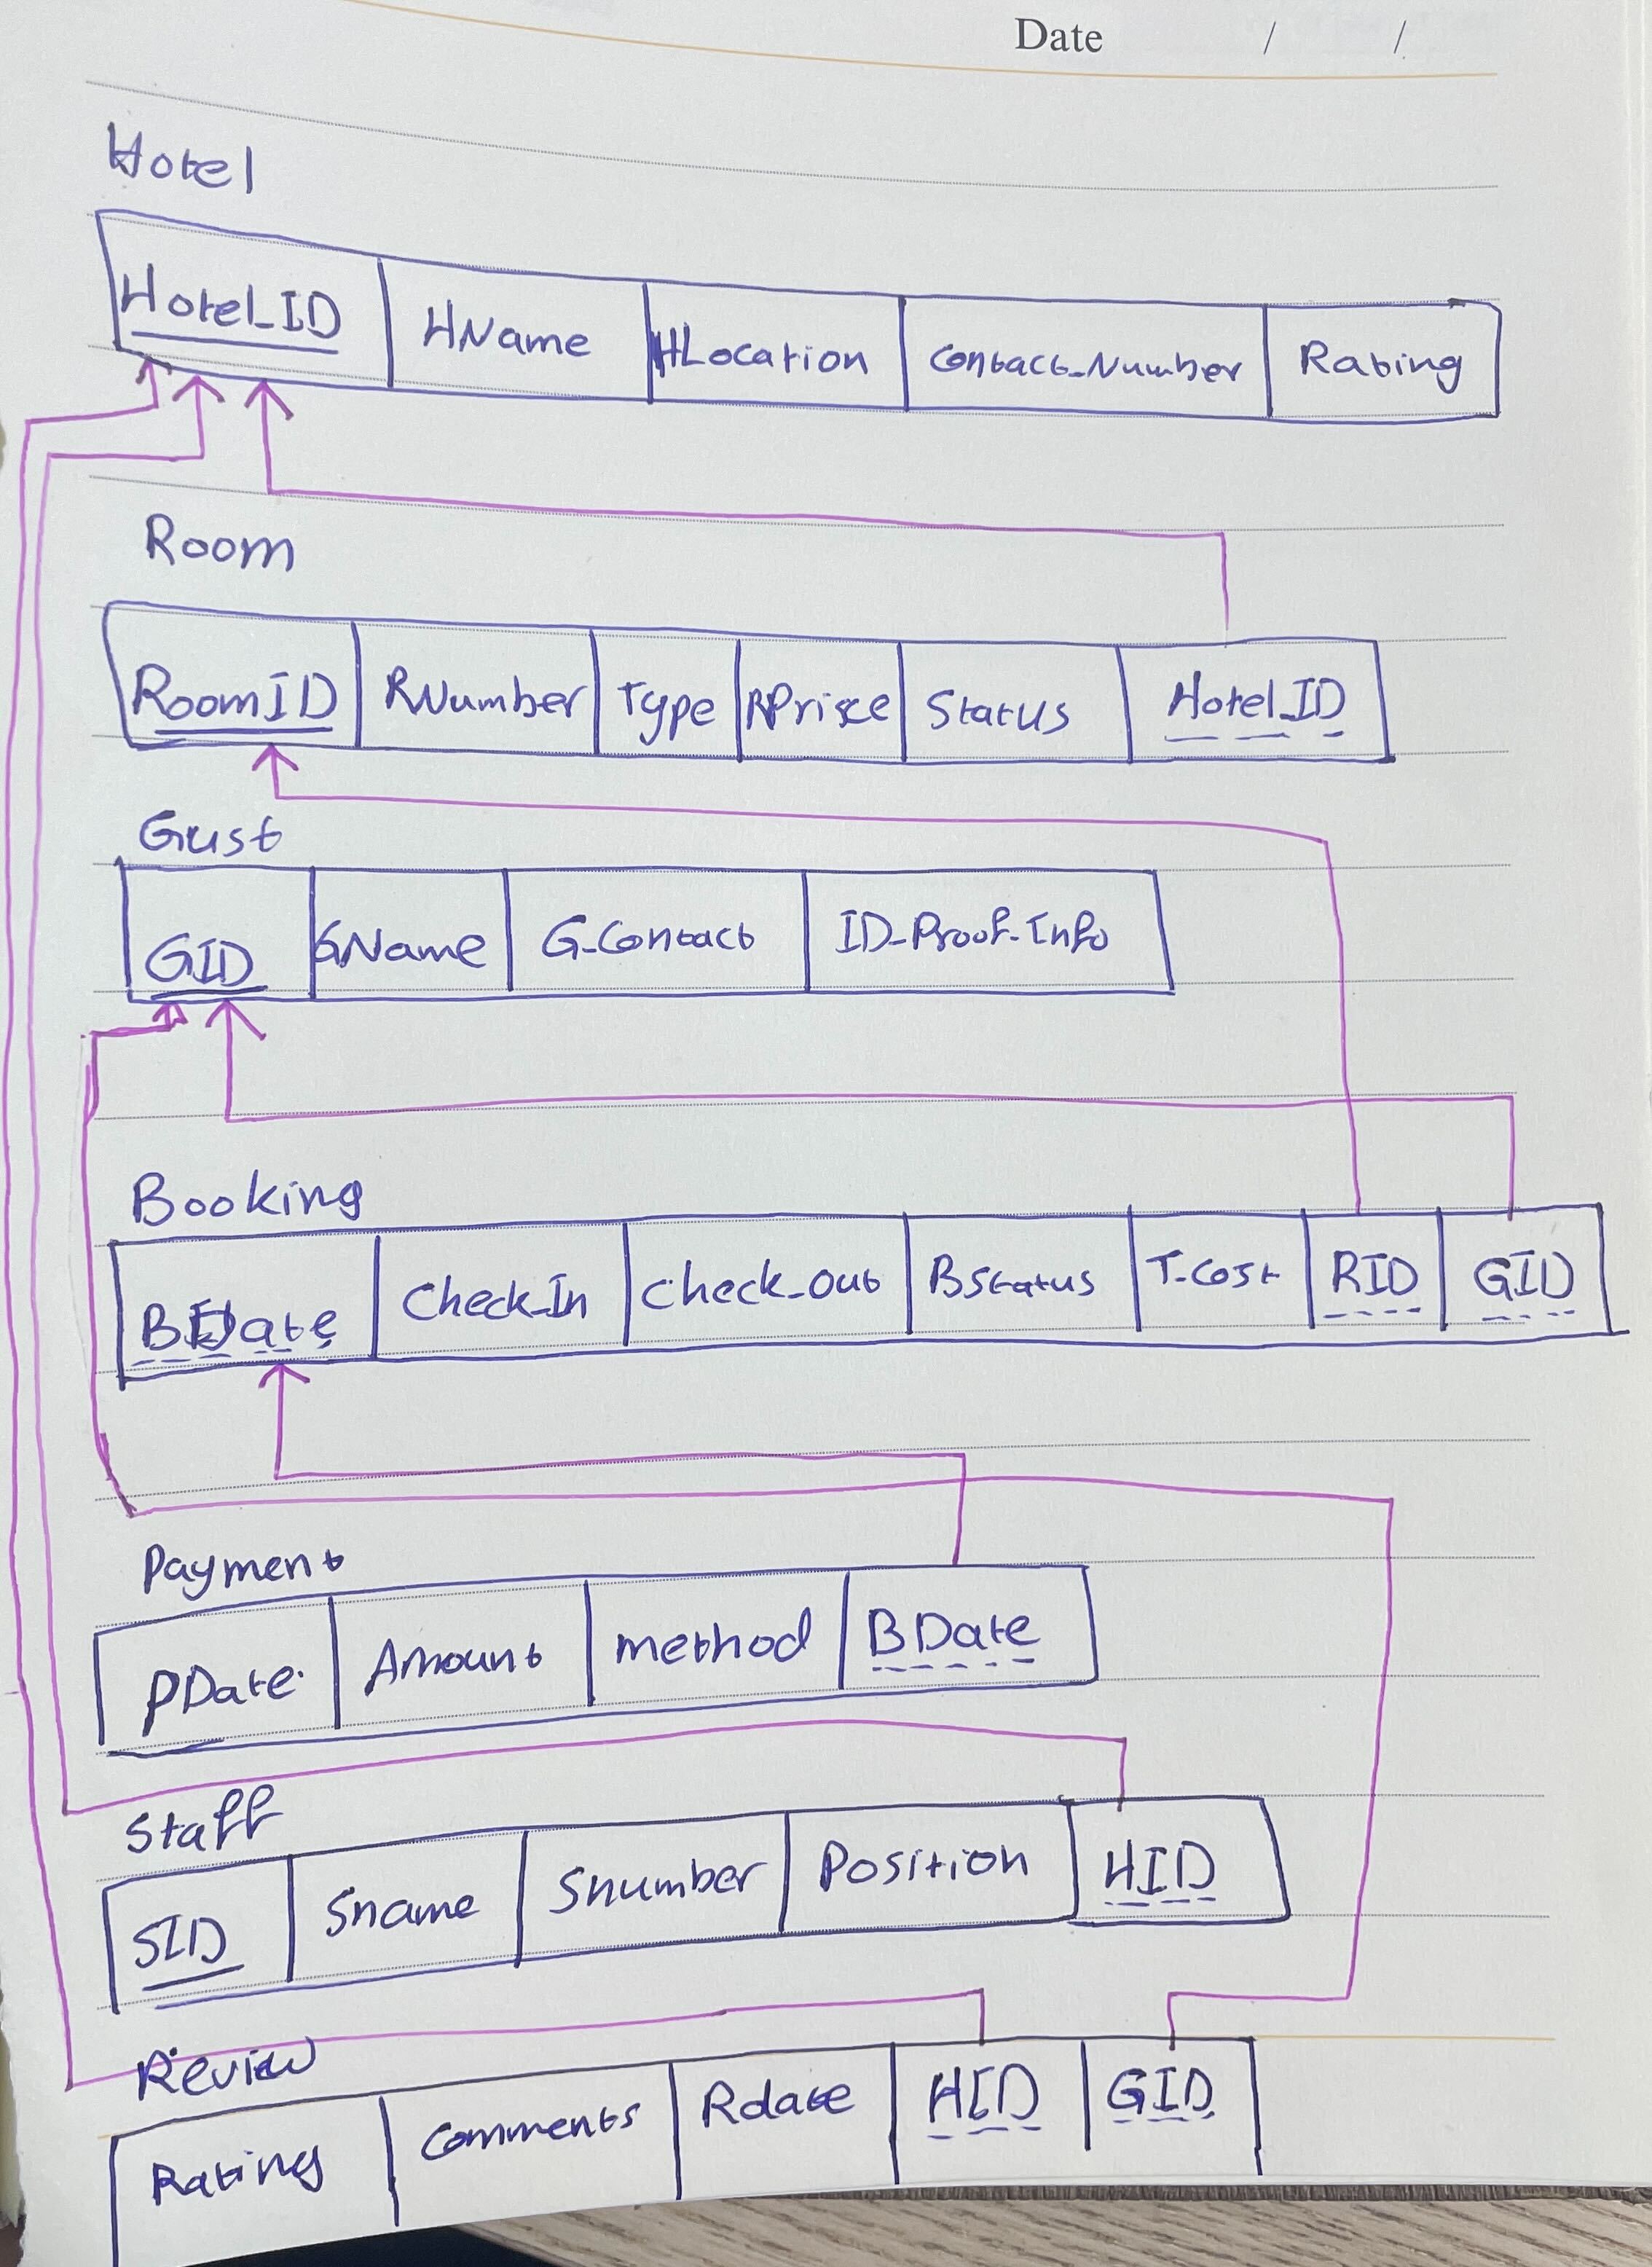 Date / /
Hotel
Hotel_ID HName HLocation Contact_Number Rating
Room
RoomID RNumber Type RPrice Status Hotel_ID
Gust
GID GName G_Contact ID_Proof_Info
Booking
BDate Check_In Check_out BStatus T_Cost RID GID
Payment
PDate Amount method BDate
Staff
SID Sname Snumber Position HID
Review
Rating Comments Rdate HID GID